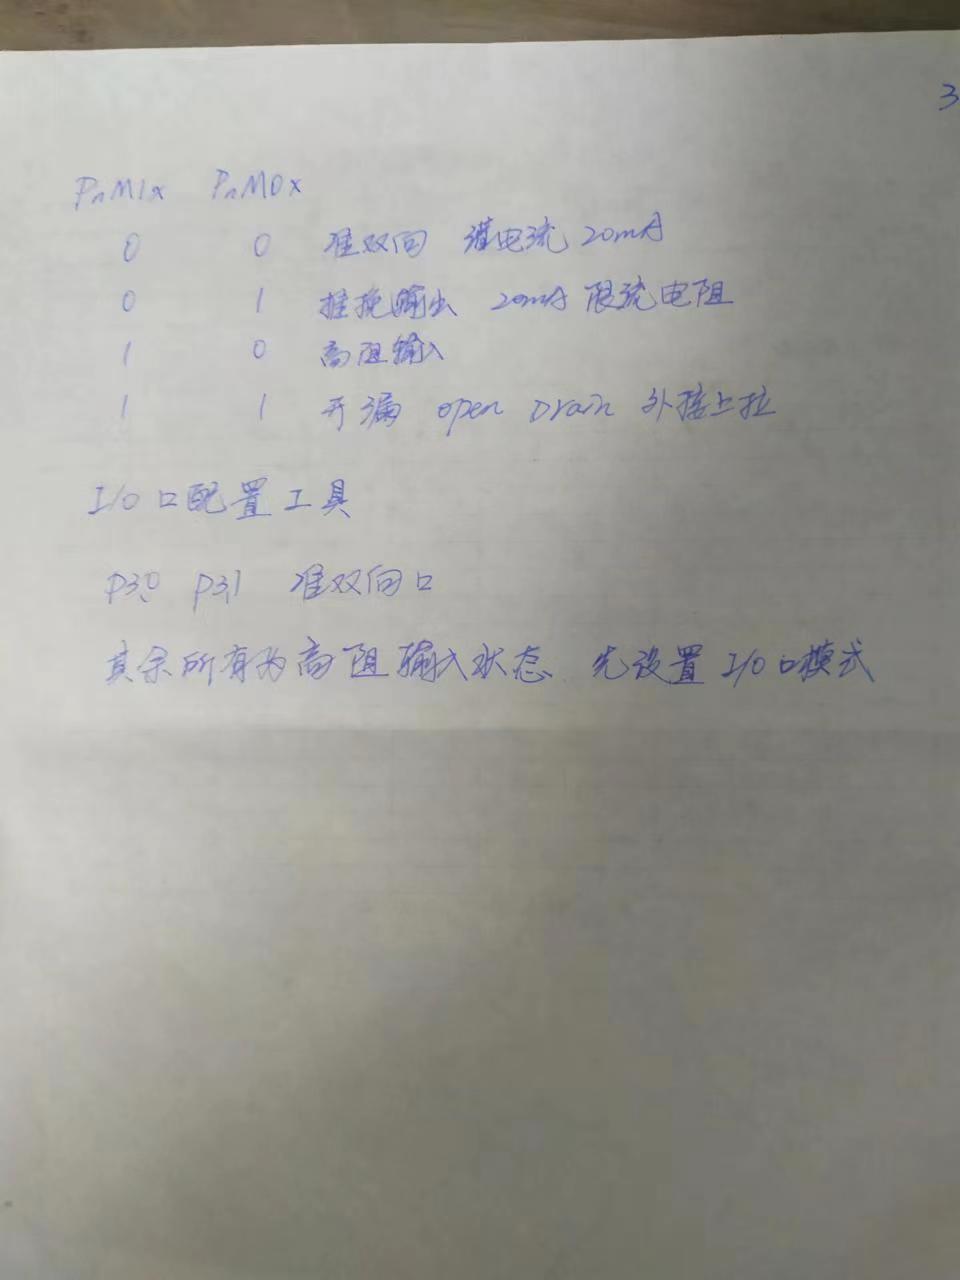 3
PnM1x PnM0x
0 0 准双向 灌电流 20mA
0 1 推挽输出 20mA 限流电阻
1 0 高阻输入
1 1 开漏 open Drain 外接上拉
I/O口配置工具
P3.0 P3.1 准双向口
其余所有为高阻输入状态 先设置I/O口模式